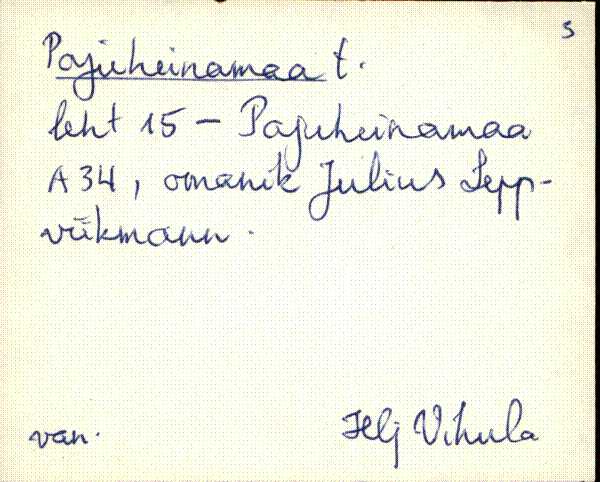 S
Pajuheinamaa t.
leht 15 - Pajuheinamaa
A 34, omanik Julius Lepp-
viikmann.
van. Hlj Vihula